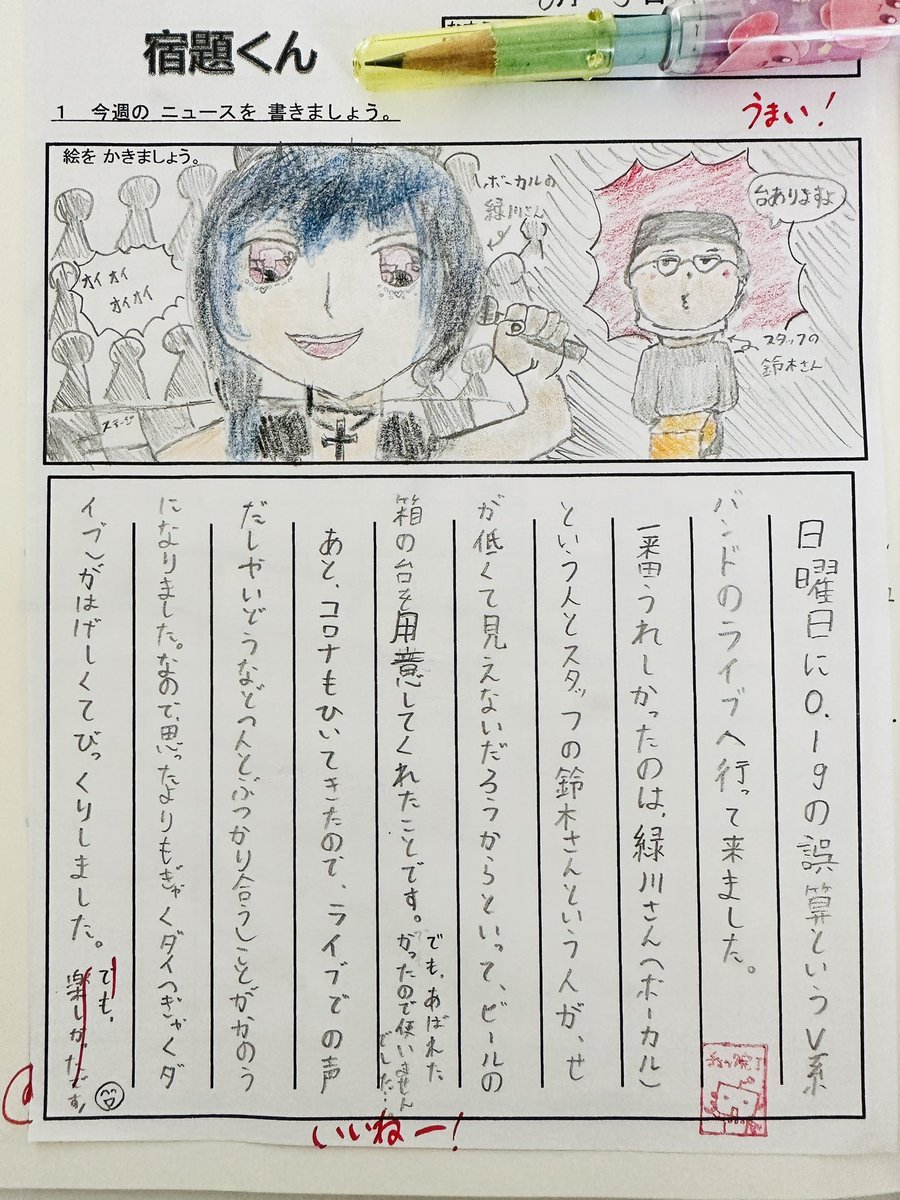 宿題くん
1 今週の ニュースを 書きましょう。
うまい!
絵を かきましょう。
ボーカルの
緑川さん
台ありますよ
オイオイ
オイオイ
スタッフの
鈴木さん
ステージ
日曜日に0.1gの誤算というV系
バンドのライブへ行って来ました。
一番うれしかったのは、緑川さん(ボーカル)
という人とスタッフの鈴木さんという人が、せ
が低くて見えないだろうからといって、ビールの
箱の台を用意してくれたことです。
でも、あばれた
かったので使いません
でした…
あと、コロナもひいてきたので、ライブでの声
だしやいどうなどの人とぶつかり合うことがかのう
になりました。なので、思ったよりもぎゃくダイ(ぎゃくダ
イブ)がはげしくてびっくりしました。
でも、
楽しかったです!
いいねー!